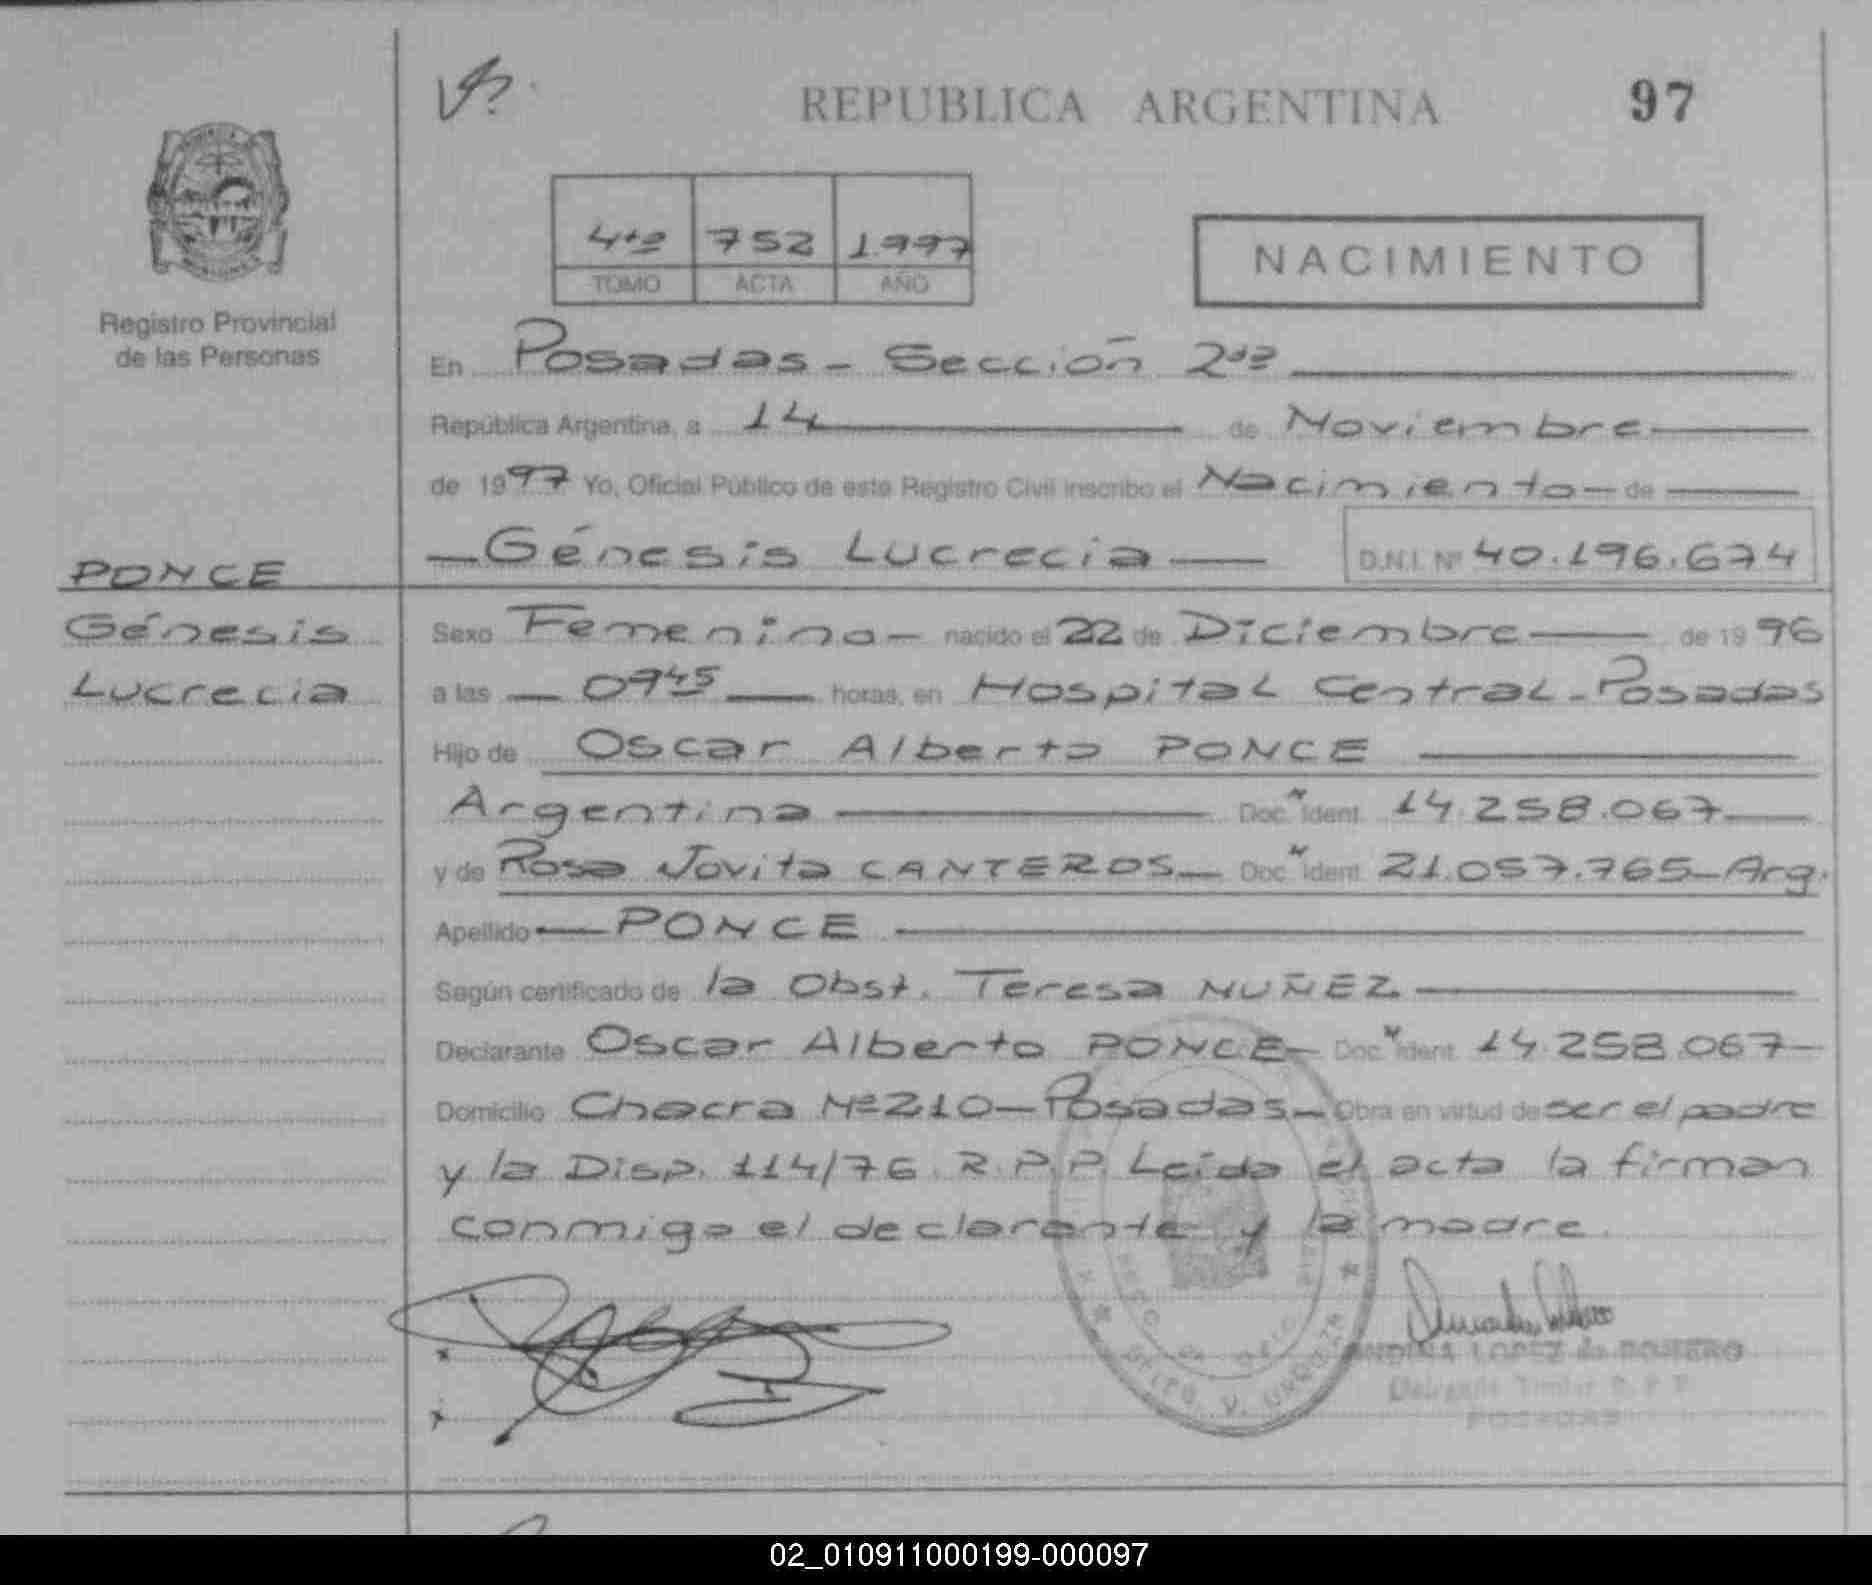 REPUBLICA ARGENTINA
97
4to 752 1.997
TOMO ACTA AÑO
NACIMIENTO
Registro Provincial
de las Personas
En Posadas - Sección 2da
República Argentina, a 14 de Noviembre
de 1997 Yo, Oficial Público de este Registro Civil inscribo el Nacimiento de
Génesis Lucrecia D.N.I. Nº 40.196.674
PONCE
Génesis
Lucrecia
Sexo Femenino - nacido el 22 de Diciembre de 1996
a las 0945 horas, en Hospital Central - Posadas
Hijo de Oscar Alberto PONCE
Argentina Doc. Ident. 14.258.067
y de Rosa Jovita CANTEROS - Doc. Ident. 21.057.765 - Arg.
Apellido PONCE
Según certificado de la Obst. Teresa NUÑEZ
Declarante Oscar Alberto PONCE - Doc. Ident. 14.258.067 -
Domicilio Chacra Nº 210 - Posadas - Obra en virtud de ser el padre
y la Disp. 114/76 R.P.P. Leída el acta la firman
conmigo el declarante y la madre.
LOPEZ de ROMERO
POSADAS
02_010911000199-000097